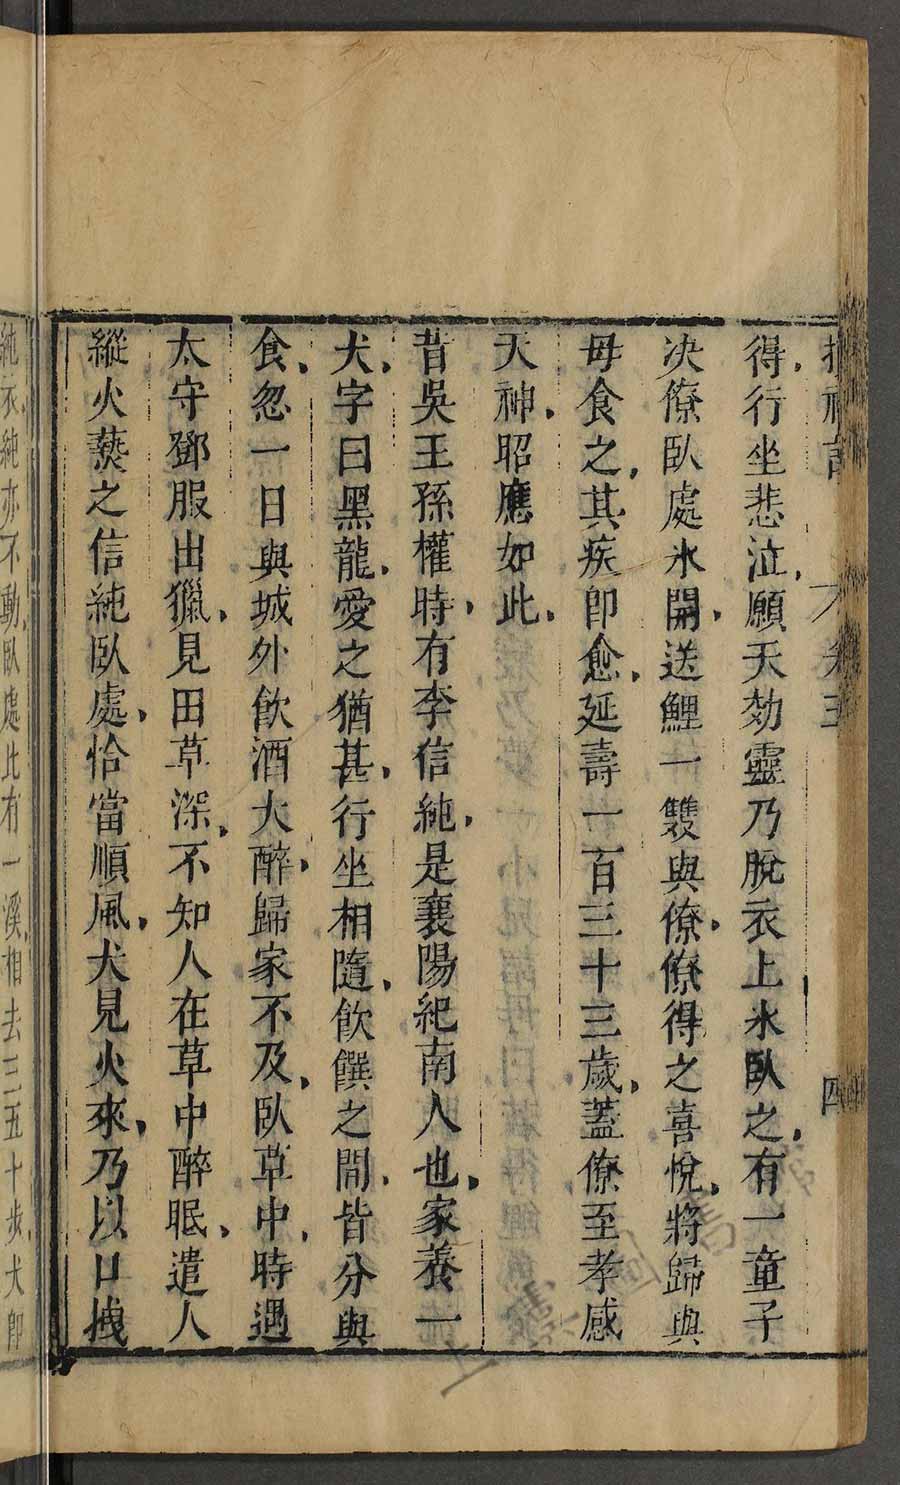 搜神記 八卷五 四
得行坐悲泣願天効靈乃脫衣上氷臥之有一童子
决僚臥處氷開送鯉一雙與僚僚得之喜悅將歸與
母食之其疾卽愈延壽一百三十三歲蓋僚至孝感
天神昭應如此
昔吳王孫權時有李信純是襄陽紀南人也家養一
犬字曰黑龍愛之猶甚行坐相隨飲饌之間皆分與
食忽一日與城外飲酒大醉歸家不及臥草中時遇
太守鄧服出獵見田草深不知人在草中醉眠遣人
縱火爇之信純臥處恰當順風犬見火來乃以口拽
純衣純亦不動臥處比有一溪相去三五十步犬卽